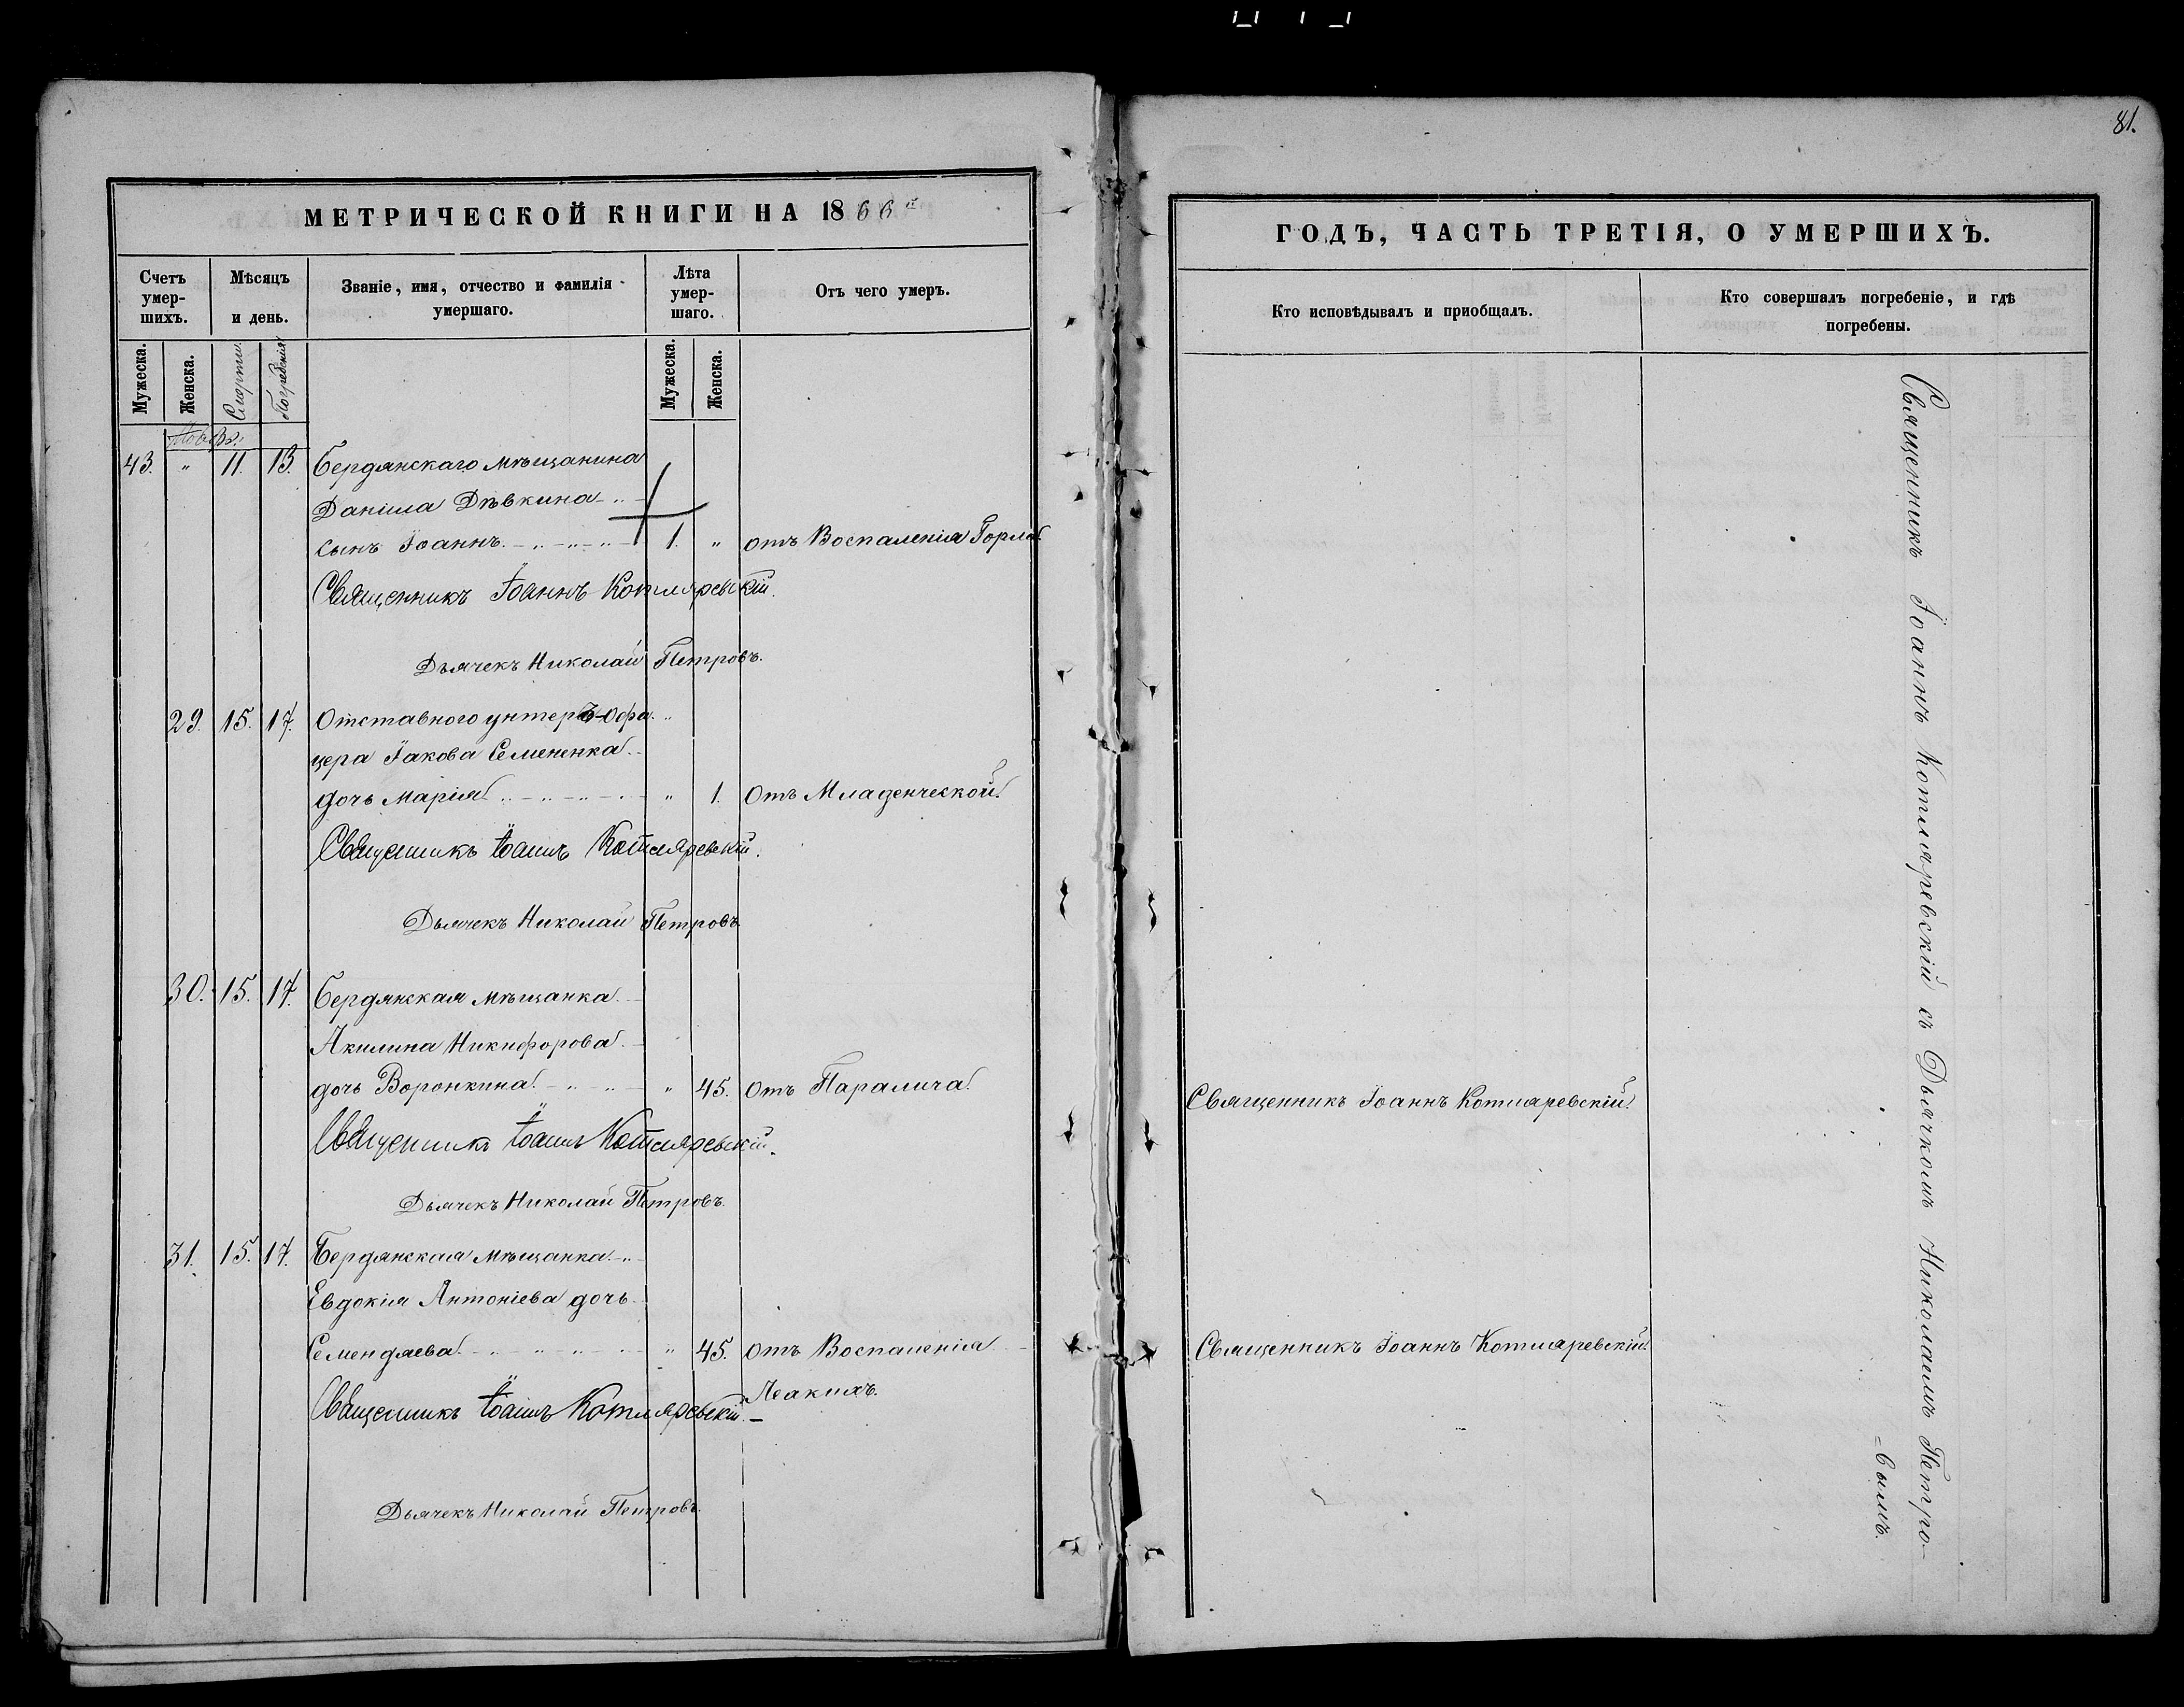 81.
МЕТРИЧЕСКОЙ КНИГИ НА 1866й
Счетъ умер-шихъ.
Мѣсяцъ и день.
Званіе, имя, отчество и фамилія умершаго.
Лѣта умер-шаго.
Отъ чего умеръ.
Мужеска.
Женска.
Смерти.
Погребенія
Мужеска.
Женска.
43. " 11. 13. Бердянскаго мѣщанина
Даніила Дѣвкина
сынъ Іоаннъ. 1. " отъ Воспаленія Горла
Священникъ Іоаннъ Котляревскій.
Дьячекъ Николай Петровъ.
29. 15. 17. Отставного унтеръ-офи-
цера Іакова Семененка
дочь Марія " 1. Отъ Младенческой
Священникъ Іоаннъ Котляревскій.
Дьячекъ Николай Петровъ.
30. 15. 17. Бердянская мѣщанка
Акилина Никифорова
дочь Воронкина. " 45. Отъ Паралича
Священникъ Іоаннъ Котляревскій.
Дьячекъ Николай Петровъ.
31. 15. 17. Бердянская мѣщанка
Евдокія Антоніева дочь
Семендяева " 45. Отъ Воспаленія
Леакихъ.
Священникъ Іоаннъ Котляревскій.
Дьячекъ Николай Петровъ.
ГОДЪ, ЧАСТЬ ТРЕТІЯ, О УМЕРШИХЪ.
Кто исповѣдывалъ и приобщалъ.
Кто совершалъ погребеніе, и гдѣ погребены.
Священникъ Іоаннъ Котляревскій
Священникъ Іоаннъ Котляревскій
Священникъ Іоаннъ Котляревскій съ Дьячкомъ Николаимъ Петро-
=вымъ.